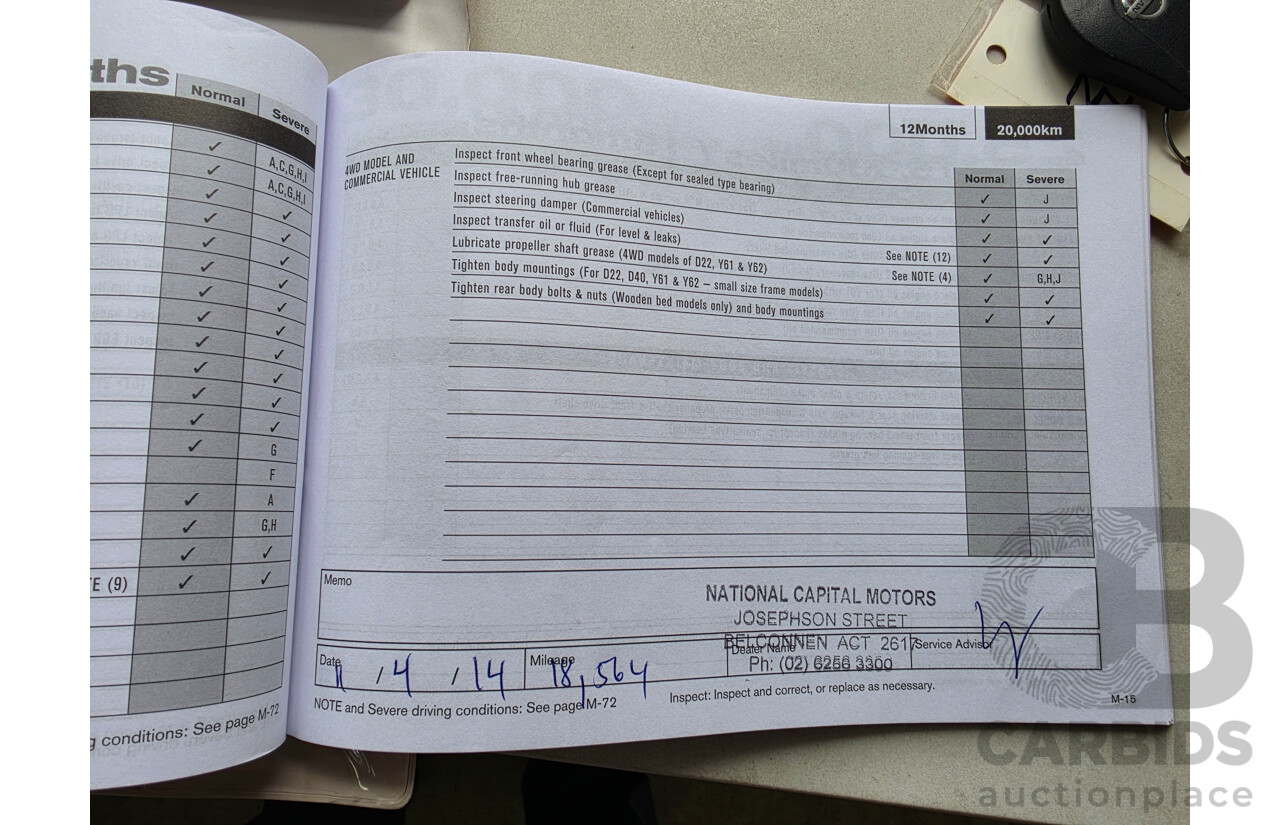 ths
Normal
Severe
✓ A,C,G,H,I
✓ A,C,G,H,I
✓ ✓
✓ ✓
✓ ✓
✓ ✓
✓ ✓
✓ ✓
✓ ✓
✓ ✓
✓ ✓
✓ ✓
✓ G
F
✓ A
✓ G,H
✓ ✓
E (9) ✓ ✓
g conditions: See page M-72
12Months 20,000km
Normal Severe
4WD MODEL AND
COMMERCIAL VEHICLE
Inspect front wheel bearing grease (Except for sealed type bearing) ✓ J
Inspect free-running hub grease ✓ J
Inspect steering damper (Commercial vehicles) ✓ ✓
Inspect transfer oil or fluid (For level & leaks) See NOTE (12) ✓ ✓
Lubricate propeller shaft grease (4WD models of D22, Y61 & Y62) See NOTE (4) ✓ G,H,J
Tighten body mountings (For D22, D40, Y61 & Y62 – small size frame models) ✓ ✓
Tighten rear body bolts & nuts (Wooden bed models only) and body mountings ✓ ✓
Memo
NATIONAL CAPITAL MOTORS
JOSEPHSON STREET
BELCONNEN ACT 2617
Ph: (02) 6256 3300
Date 11 / 4 / 14
Mileage 18,564
Dealer Name
Service Advisor
NOTE and Severe driving conditions: See page M-72
Inspect: Inspect and correct, or replace as necessary.
M-15
CARBIDS
auctionplace